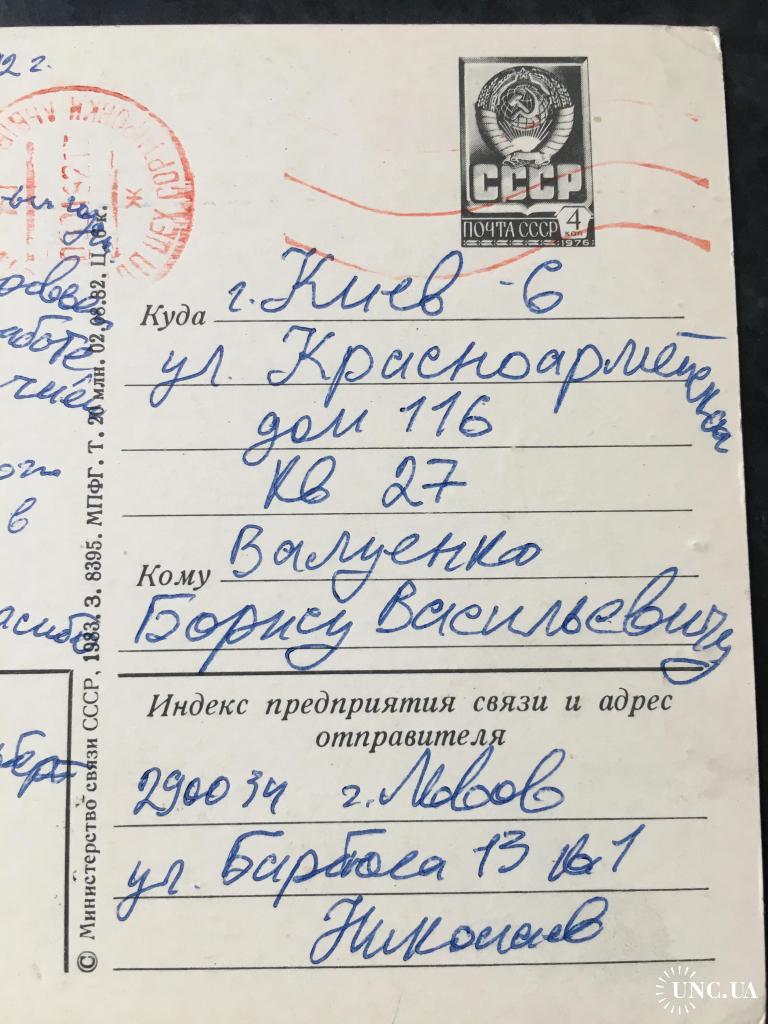 2 г.
СССР
ПОЧТА СССР
4
коп
1976
Куда г. Киев - 6
ул. Красноармейская
дом 116
кв 27
Кому Валуенко
Борису Васильевичу
Индекс предприятия связи и адрес
отправителя
290034 г. Львов
ул. Барбюса 13 кв 1
Николаев
© Министерство связи СССР, 1983. З. 8395. МПФГ. Т. 20 млн. 02.08.82. Ц. 5 к.
работе
в
UNC.UA